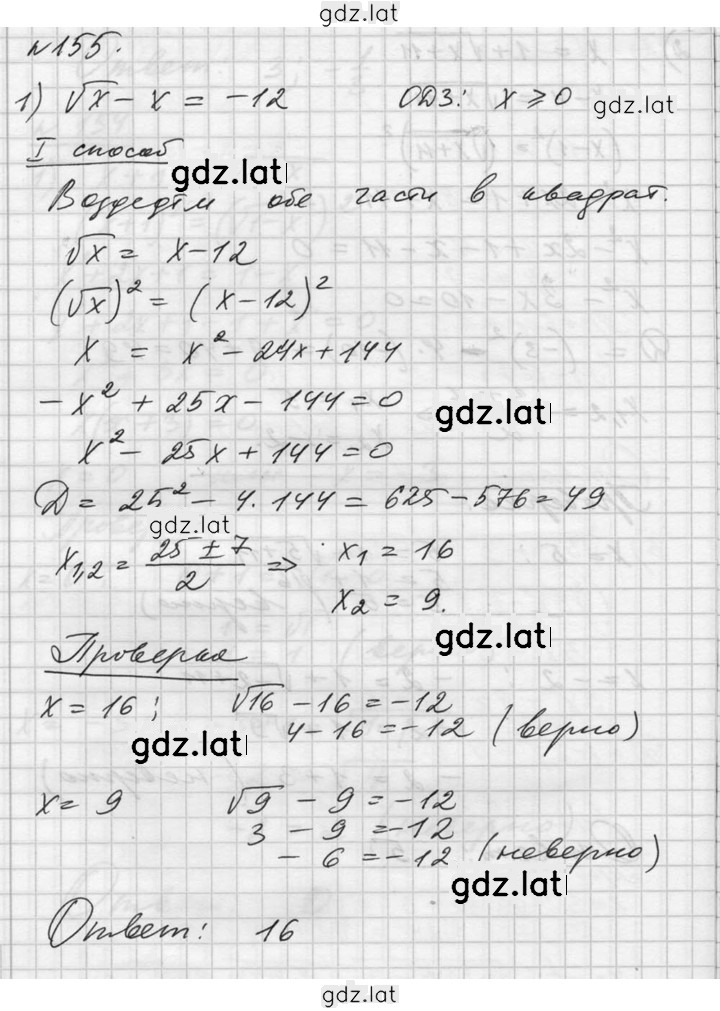 gdz.lat
№155.
1) √x - x = -12 ОДЗ: x ⩾ 0
gdz.lat
I способ
gdz.lat
Возведём обе части в квадрат.
√x = x - 12
(√x)² = (x - 12)²
x = x² - 24x + 144
-x² + 25x - 144 = 0
gdz.lat
x² - 25x + 144 = 0
D = 25² - 4·144 = 625 - 576 = 49
gdz.lat
x₁,₂ = (25 ± 7)/2 ⇒ x₁ = 16
x₂ = 9.
gdz.lat
Проверка
x = 16; √16 - 16 = -12
4 - 16 = -12 (верно)
gdz.lat
x = 9 √9 - 9 = -12
3 - 9 = -12
-6 = -12 (неверно)
gdz.lat
Ответ: 16
gdz.lat